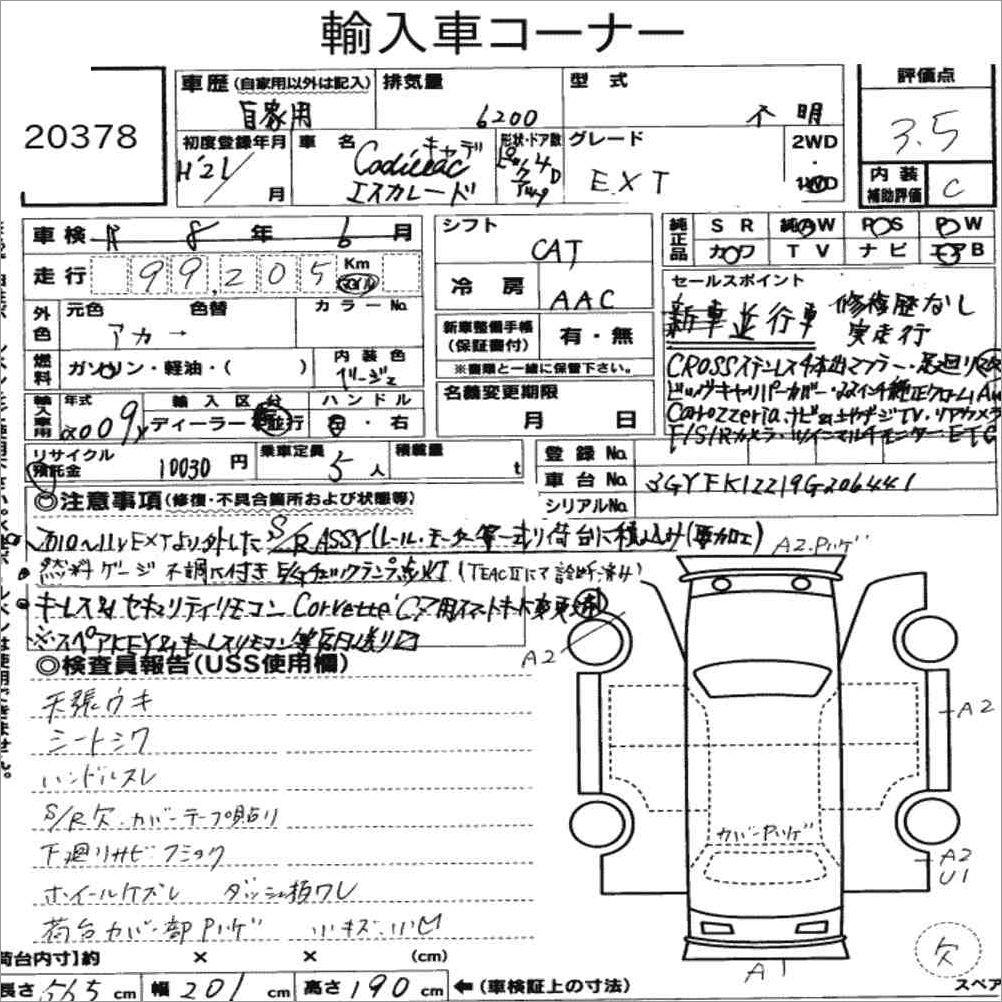 輸入車コーナー
20378
車歴(自家用以外は記入)
自家用
排気量
6200
型式
不明
評価点
3.5
初度登録年月
H'21/ 月
車名
Cadillac キャデ
エスカレード
形状・ドア数
4D
グレード
EXT
2WD
・
4WD
内装
補助評価
C
車検 R 8 年 6 月
シフト
CAT
純正品
SR 純AW PS PW
カワ TV ナビ エアB
走行 99,205 Km マイル
冷房
AAC
セールスポイント
新車並行車 修復歴なし
実走行
外色
元色 色替
アカ →
カラーNo.
新車整備手帳
(保証書付)
有・無
※書類と一緒に保管下さい。
燃料
ガソリン・軽油・( )
内装色
ベージュ
CROSSステンレス4本出マフラー・
ビッグキャリパーカバー・22インチ純正クロームAW
Carrozzeria ナビ 地デジTV・リアカメラ
F/S/Rカメラ・ツインマルチモニター・ETC
名義変更期限
月 日
輸入車用
年式
2009y
輸入区分
ディーラー・並行
ハンドル
左・右
リサイクル
預託金
10030 円
乗車定員
5 人
積載量
t
登録No.
車台No. 3GYFK12219G206441
シリアルNo.
◎注意事項(修復・不具合箇所および状態等)
'10～11y EXTより外したS/R ASSY(レール・モーター等一式)荷台に積込み(要加工)
燃料ゲージ不調に付きE/gチェックランプ点灯(TEACⅡにて診断済み)
キーレス&セキュリティリモコン Corvette C7用スマートキーに変更済
※スペアKEY&キーレスリモコン等後日送り
◎検査員報告(USS使用欄)
天張ウキ
シートシワ
ハンドルスレ
S/R欠・カバーテープ貼り
下廻りサビ・フショク
ホイールケズレ ダッシュ板ワレ
荷台カバー部ハゲ 小キズ・小凹
A2・ハゲ
A2
A2
カバーハゲ
A2
U1
A1
欠
スペア
荷台内寸】約 × × (cm)
長さ 565 cm 幅 201 cm 高さ 190 cm ←(車検証上の寸法)